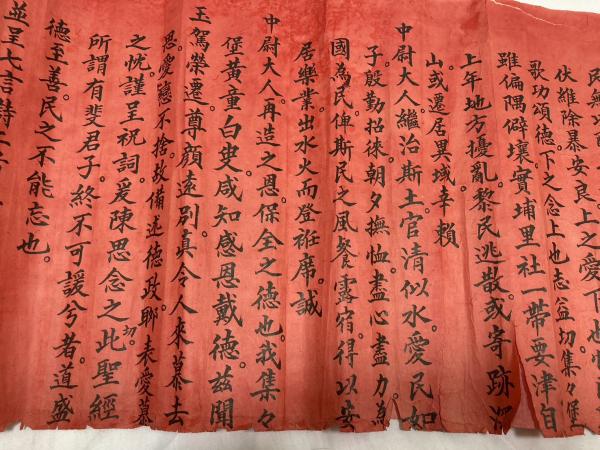 民無
伏維除暴安良。上之愛下也
歌功頌德。下之念上也。志益切。集々堡
雖偏隅僻壤。實埔里社一帶要津。自
上年地方擾亂。黎民逃散。或寄跡
山。或遷居異域。幸賴
中尉大人。繼治斯土。官清似水。愛民如
子。殷勤招徠。朝夕撫恤。盡心盡力。為
國為民。俾斯民之風餐露宿。得以安
居樂業。出水火而登袵席。誠
中尉大人。再造之恩。保全之德也。我集々
堡黃童白叟。咸知感恩戴德。茲聞
玉駕榮遷。尊顏遠別。真令人來慕去
思。愛戀不捨。故備述德政。聊表愛慕
之忱。謹呈祝詞。爰陳思念之切。此聖經
所謂有斐君子。終不可諼兮者。道盛
德至善。民之不能忘也。
並呈七言詩